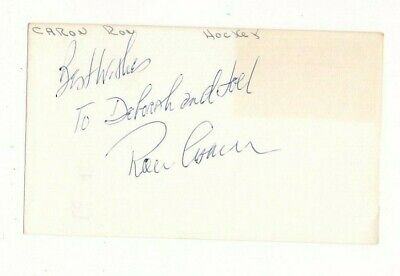 CARON RON HOCKEY
Best Wishes
To Deborah and Joel
Ron Caron